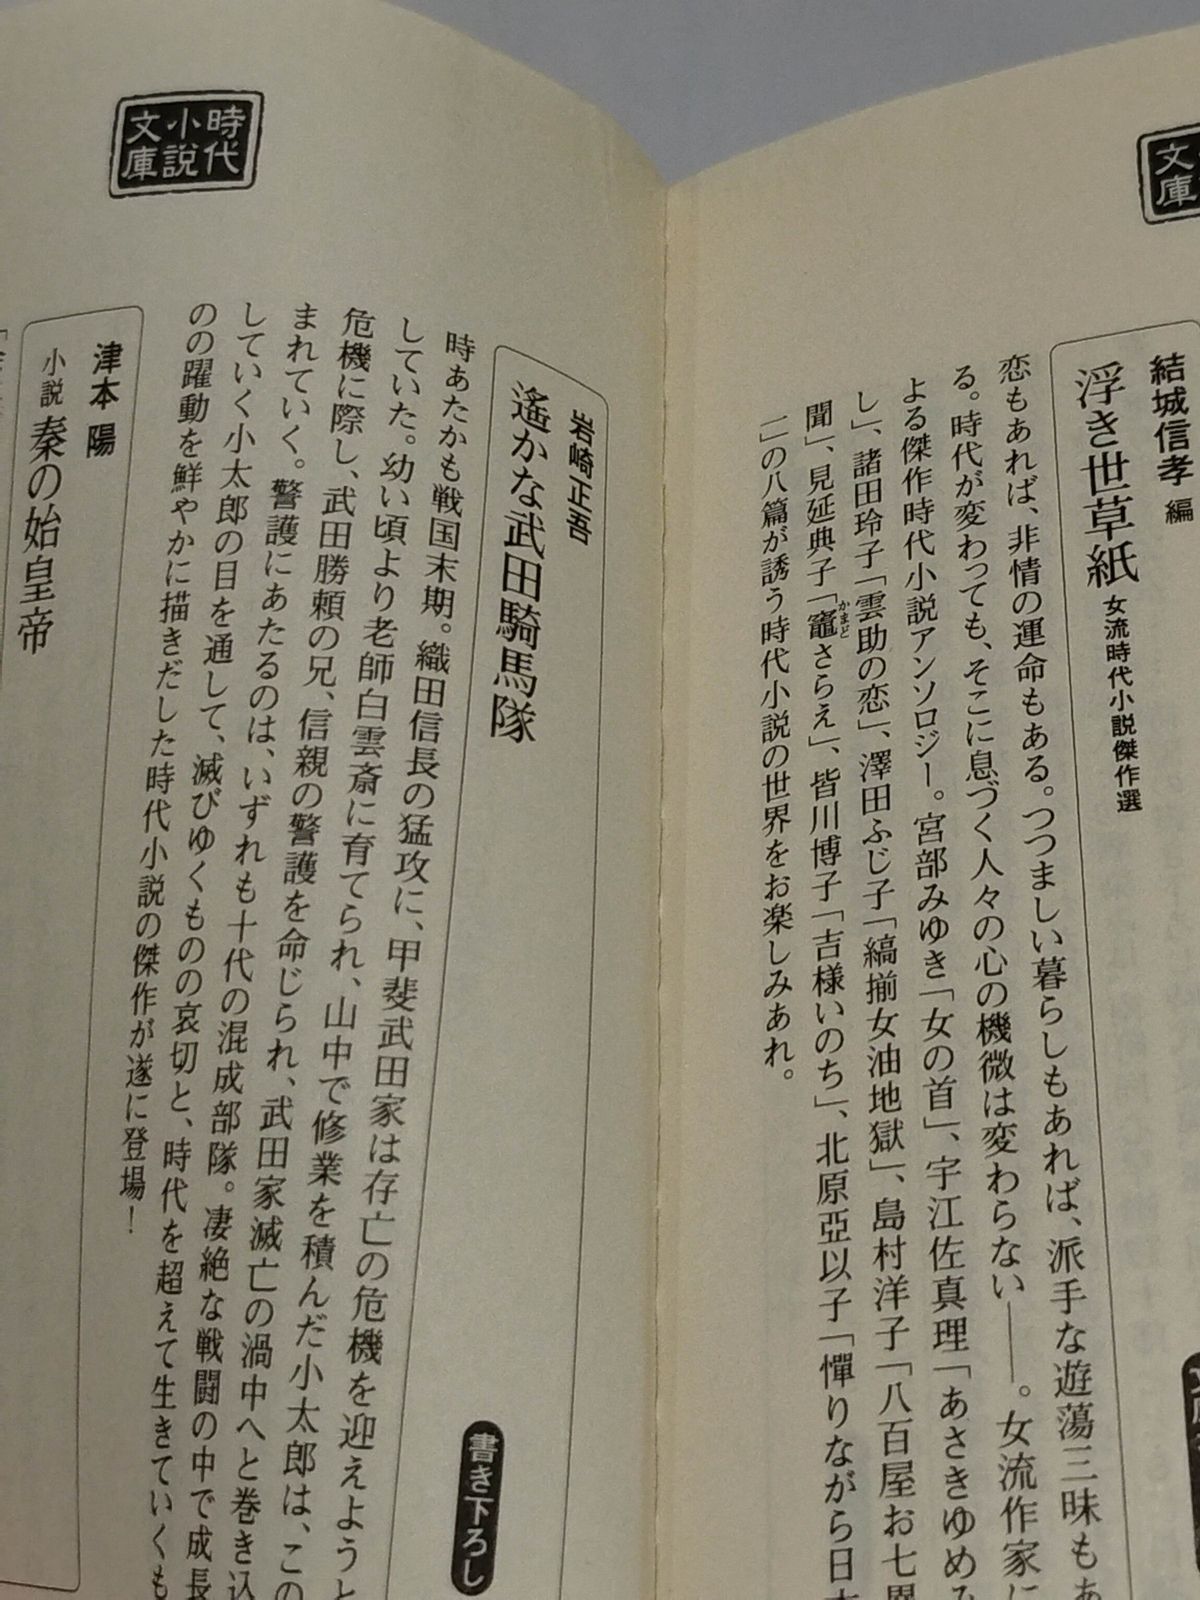 文庫
結城信孝 編
浮き世草紙 女流時代小説傑作選
恋もあれば、非情の運命もある。つつましい暮らしもあれば、派手な遊蕩三昧もあ
る。時代が変わっても、そこに息づく人々の心の機微は変わらない――。女流作家に
よる傑作時代小説アンソロジー。宮部みゆき「女の首」、宇江佐真理「あさきゆめみ
し」、諸田玲子「雲助の恋」、澤田ふじ子「縞揃女油地獄」、島村洋子「八百屋お七異
聞」、見延典子「竈さらえ」、皆川博子「吉様いのち」、北原亞以子「憚りながら日本
一」の八篇が誘う時代小説の世界をお楽しみあれ。
かまど
時代小説文庫
岩崎正吾
遙かな武田騎馬隊
書き下ろし
時あたかも戦国末期。織田信長の猛攻に、甲斐武田家は存亡の危機を迎えようと
していた。幼い頃より老師白雲斎に育てられ、山中で修業を積んだ小太郎は、この
危機に際し、武田勝頼の兄、信親の警護を命じられ、武田家滅亡の渦中へと巻き込
まれていく。警護にあたるのは、いずれも十代の混成部隊。凄絶な戦闘の中で成長
していく小太郎の目を通して、滅びゆくものの哀切と、時代を超えて生きていくも
のの躍動を鮮やかに描きだした時代小説の傑作が遂に登場！
津本 陽
小説 秦の始皇帝